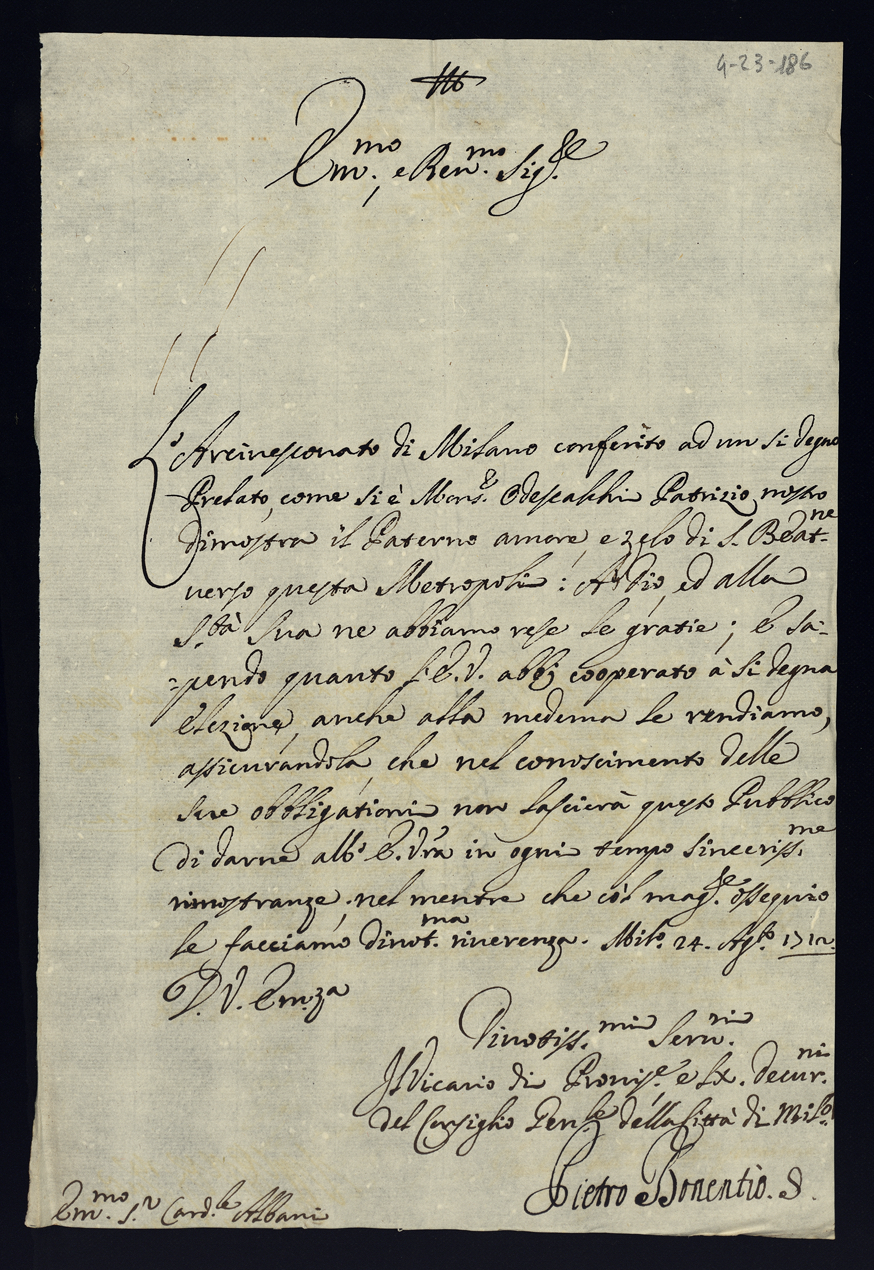 4-23-186
Em.mo, e Rev.mo Sig.re
L'Arcivescovato di Milano conferito ad un si degno
Prelato, come si è Mons.r Odescalchi Patrizio nostro
dimostra il Paterno amore, e zelo di S. Beat.ne
verso questa Metropoli: A Dio, ed alla
S.tà Sua ne abbiamo rese le gratie; E sa-
-pendo quanto l'E.V. abbj cooperato à si degna
elezione, anche alla medema le rendiamo,
assicurandola, che nel conoscimento delle
sue obbligationi non lascierà questo Pubblico
di darne all'E. Vra in ogni tempo sinceriss.me
rimostranze, nel mentre che col mag.re ossequio
le facciamo divot.ma riverenza. Mil.o 24. Ag.to 1712.
D. V. Em.za
Divotiss.mi Serv.ri
Il Vicario di Provis.e e LX. Decur.ni
del Consiglio Gen.le della Città di Mil.o
Em.mo S.r Card.le Albani
Pietro Bonentio. S.